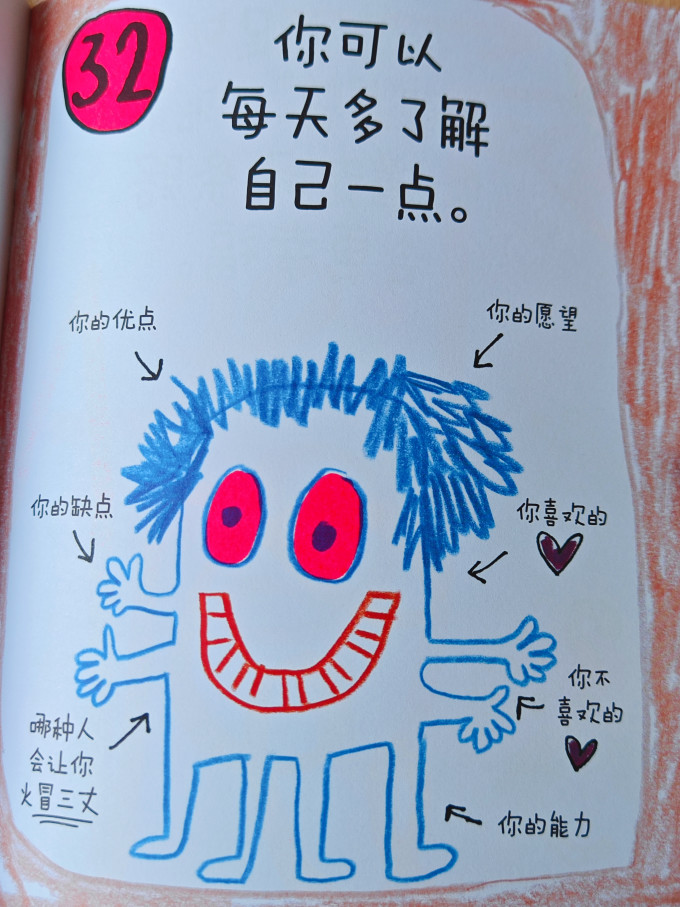 32
你可以
每天多了解
自己一点。
你的优点
你的愿望
你的缺点
你喜欢的
你不
喜欢的
哪种人
会让你
火冒三丈
你的能力